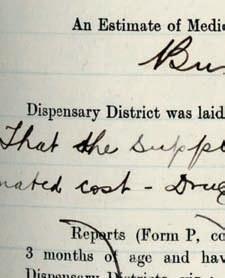 An Estimate of Medi
Bu
Dispensary District was laid
That the suppl
mated cost - Drug
Reports (Form P, co
3 months of age and hav
Dispensary Districts